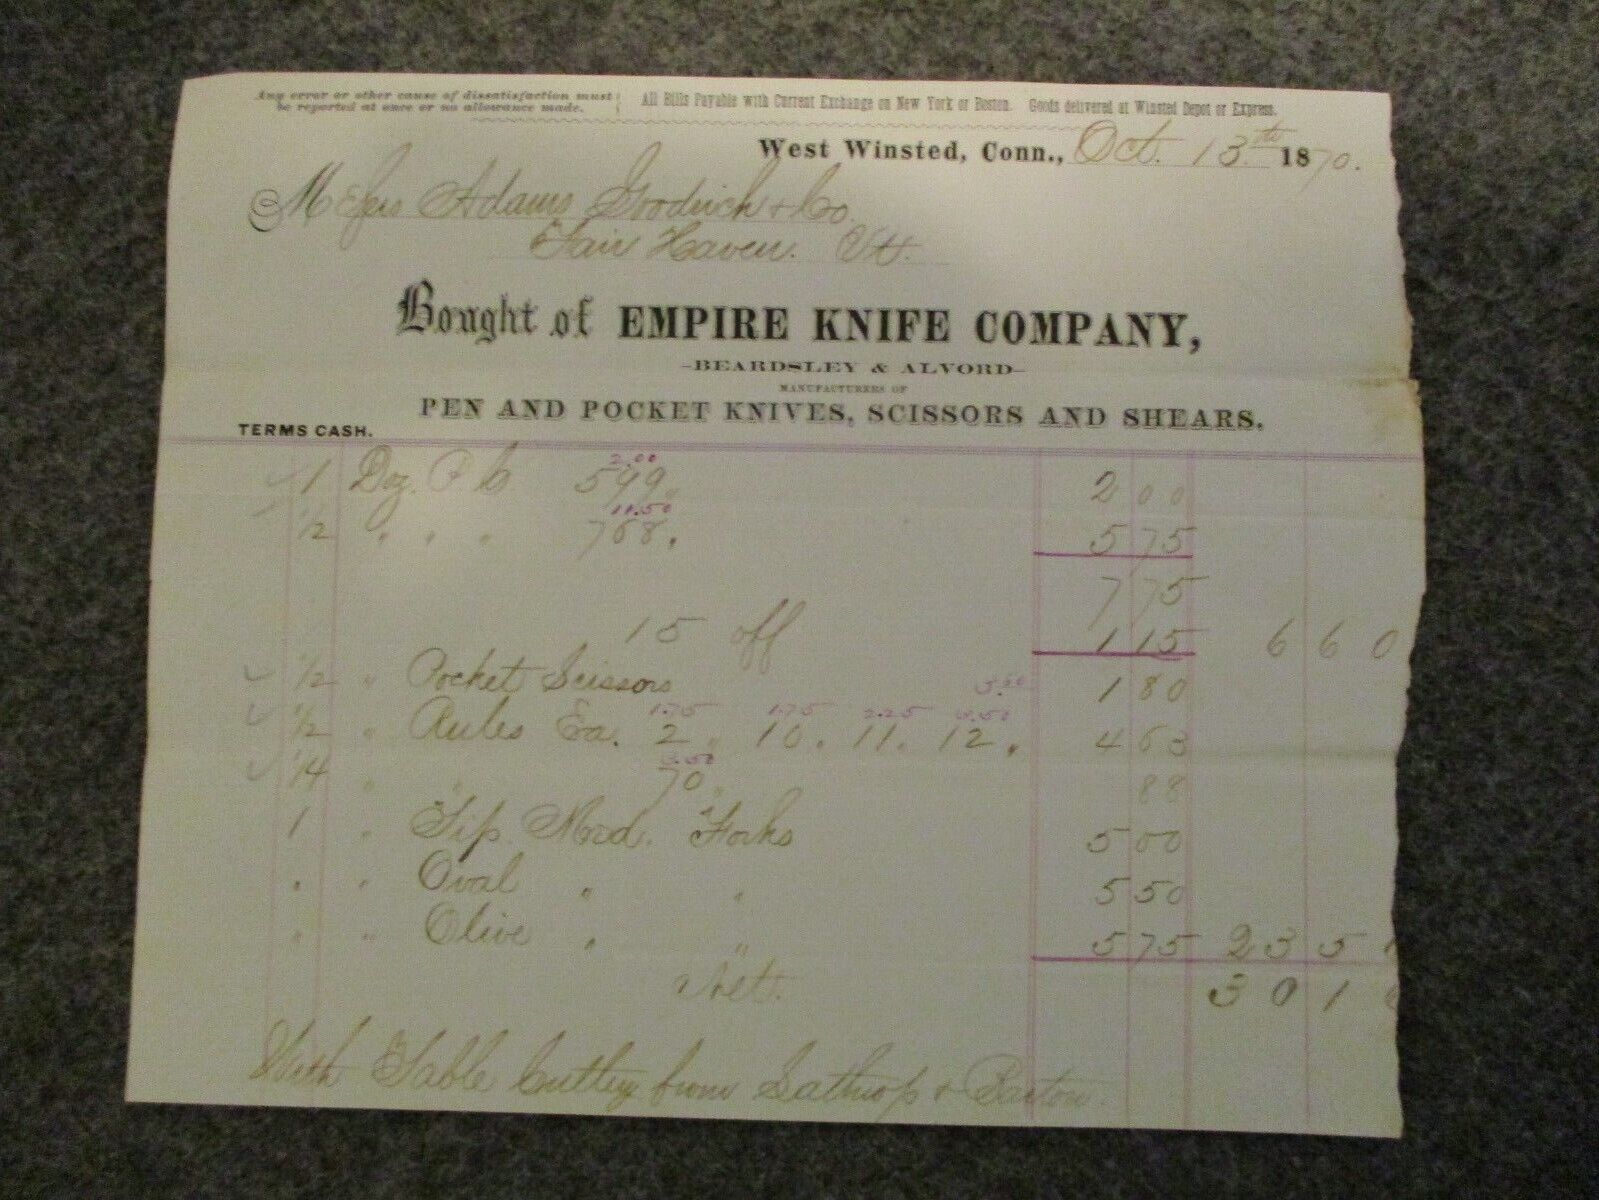 Any error or other cause of dissatisfaction must be reported at once or no allowance made.
All Bills Payable with Current Exchange on New York or Boston. Goods delivered at Winsted Depot or Express.
West Winsted, Conn., Oct. 13th 1870.
Messrs Adams Goodrich & Co.
Fair Haven. Vt.
Bought of EMPIRE KNIFE COMPANY,
-BEARDSLEY & ALVORD-
MANUFACTURERS OF
PEN AND POCKET KNIVES, SCISSORS AND SHEARS.
TERMS CASH.
2.00
1 Doz. P C 599 " 2 00
11.50
1/2 " " " 768 " 5 75
7 75
15 off 1 15 6 60
1/2 " Pocket Scissors 1 80
1.75 1.75 2.25 3.50
1/2 " Rules Ea. 2 " 10 . 11 . 12 . 4 63
3.50
1/4 " " 70 " 88
1 " Tip. Mxd. Forks 5 00
" " Oval " " 5 50
" " Olive " " 5 75 23 5
Net. 30 1
With Table Cutlery from Lathrop & Barton.